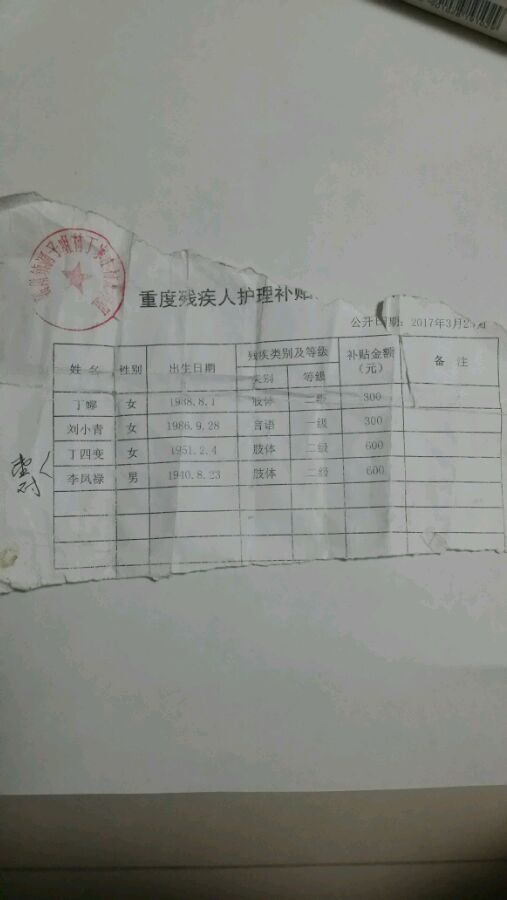 重度残疾人护理补贴
公开日期：2017年3月2
姓名 性别 出生日期 残疾类别及等级 补贴金额（元） 备注
类别 等级
丁娜 女 1938.8.1 肢体 二级 300
刘小青 女 1986.9.28 言语 一级 300
丁四变 女 1951.2.4 肢体 二级 600
李凤禄 男 1940.8.23 肢体 二级 600